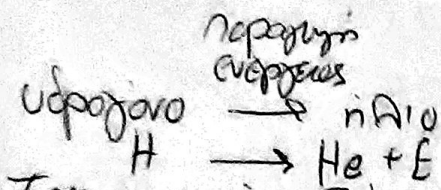 παραγωγή
ενέργειας
υδρογόνο → ήλιο
H → He + E